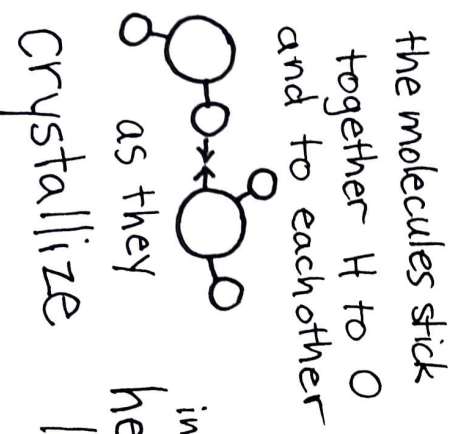 the molecules stick
together H to O
and to eachother
as they
crystallize
in
he